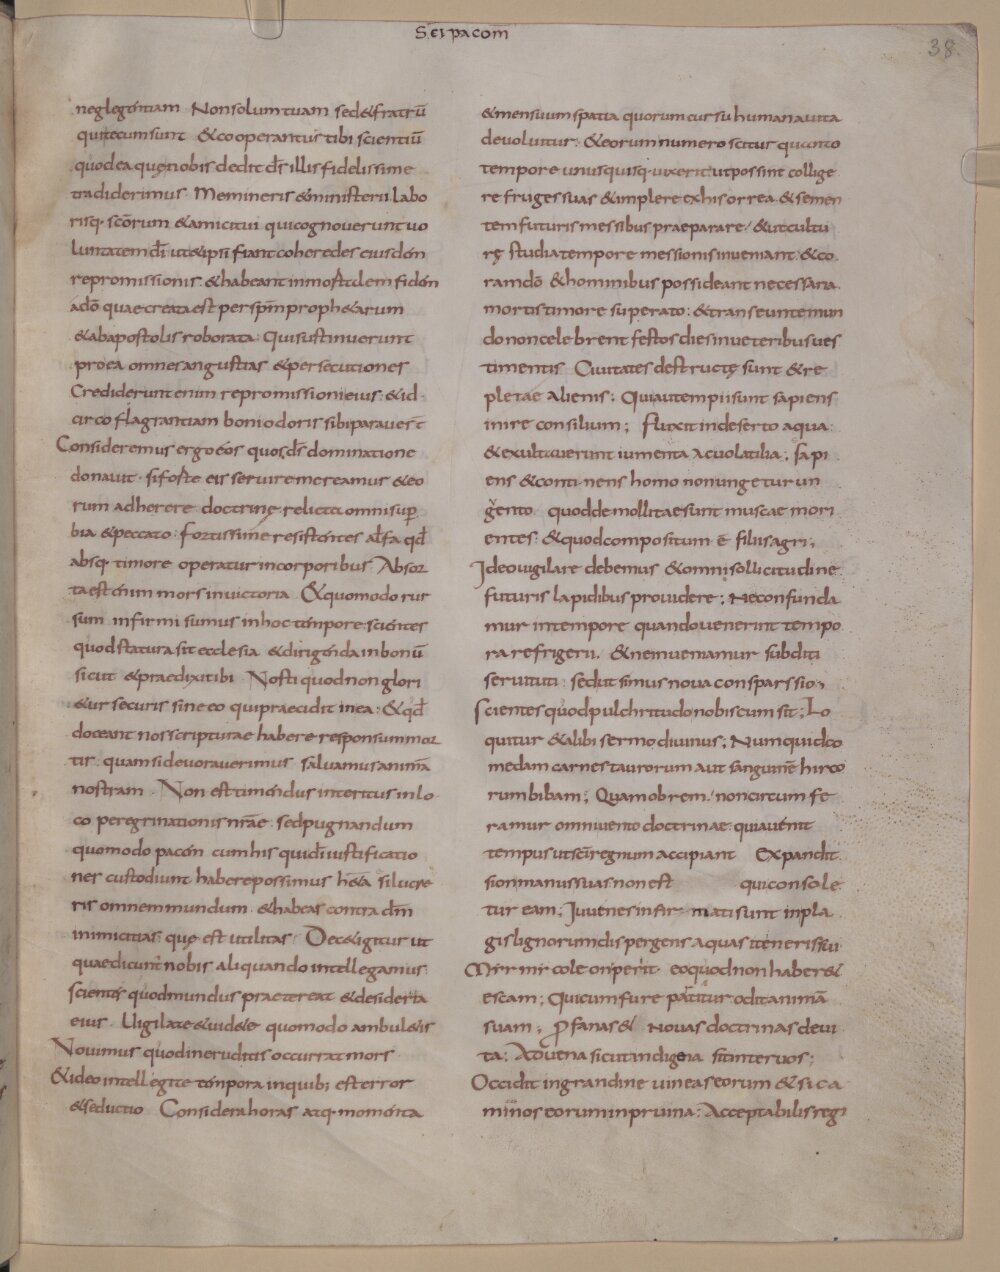 S̄C̄I pacom̄
38.
neglegentiam Non solum tuam sed & fratrū
qui tecum sunt & cooperantur tibi scientiū
quod ea quę nobis dedit d̄s illis fidelissime
tradiderimus. Memineris & ministerii labo
risq· scōrum & amicitui qui cognouerunt uo
luntatem dī ut & ipsi fiant coheredes eiusdem
repromissionis. & habeant inmostdem fidem
ad̄o quae creata est per sp̄m proph&arum
& ab apostolis roborata. Qui sustinuerunt
pro ea omnes angustias & persecutiones
Crediderunt enim repromissioni eius & id
circo flagrantiam boni odoris sibi parauer̄t
Consideremus ergo eos quos d̄s dominatione
donauit. si foste eis seruire mereamur & eo
rum adherere doctrinę relicta omni sup̱
bia & peccato. Fortissime resistentes
absq· timore operatur in corporibus. Absor
ta est enim mors in uictoria &quomodo rur
sum infirmi sumus in hoc tempore scientes
quod statura sit ecclesia & dirigenda in bonū
sicut & praedixi tibi Nosti quod non glori
&ur securis sine eo qui praecidit in ea: & qd̄
doceant nos scripturae habere responsum mor
tis quam si deuorauerimus saluamus animā
nostram. Non est timendus interitus in lo
co peregrinationis nr̄ae. sed pugnandum
quomodo pacem cum his qui dī iustificatio
nes custodiunt habere possimus h&a si lucre
ris omnem mundum & habeas contra d̄m
inimicitias quę est utilitas. Dec&igitur ut
quae dicunt nobis aliquando intellegamus
scientes quod mundus praetereat & desideria
eius. Uigilate & uid&e quomodo ambul&is
Nouimus quod ineruditis occurrat mors
& ideo intellegite tempora in quib; est error
& seductio Considera horas atq· momenta
& mensium spatia quorum cursu humana uita
deuoluitur. & eorum numero scitur quanto
tempore unusquisq· uixerit ut possint collige
re fruges suas & implere ex his orrea. & semen
tem futuris messibus praeparare / & ut cultu
rę studia tempore messionis inueniant. & co
ram dō & hominibus possideant necessaria
mortis timore superato: & transeunte mun
do non celebrent festos dies in ueteribus ues
timentis Ciuitates destructę sunt & re
pletae alienis; Qui autem pii sunt sapiens
inire consilium; Fluxit in deserto aqua
& exultauerunt iumenta a cuolatilia; sapi
ens & continens homo non unge tur un
gento quod demollitae sunt muscae mori
entes. & quod compositum ē filius agri;
Ideo uigilare debemus & omni sollicitudine
futuris lapidibus prouidere; Ne confunda
mur in tempore quando uenerint tempo
ra refrigerii. & ne inueniamur subditi
seruituti sed ut simus noua consparssio,
scientes quod pulchritudo nobiscum sit; Lo
quitur & alibi sermo diuinus; Numquid co
medam carnes taurorum aut sanguinē hirco
rum bibam; Quamobrem / non circum fe
ramur omni uento doctrinae. quia uenit
tempus ut scī regnum accipiant Expandit
sion manus suas non est qui console
tur eam; Iuuenes infir mati sunt in pla
gis lignorum dispergens aquas itineris sui
Myrmicoleon periit eo quod non haber&
escam; Qui cum fure patitur odit animā
suam; Profanas & nouas doctrinas deui
ta; Aduena sicut indigena sit inter uos;
Occidit in grandine uineas eorum & sica
minos eorum in pruina; Acceptabilis regi